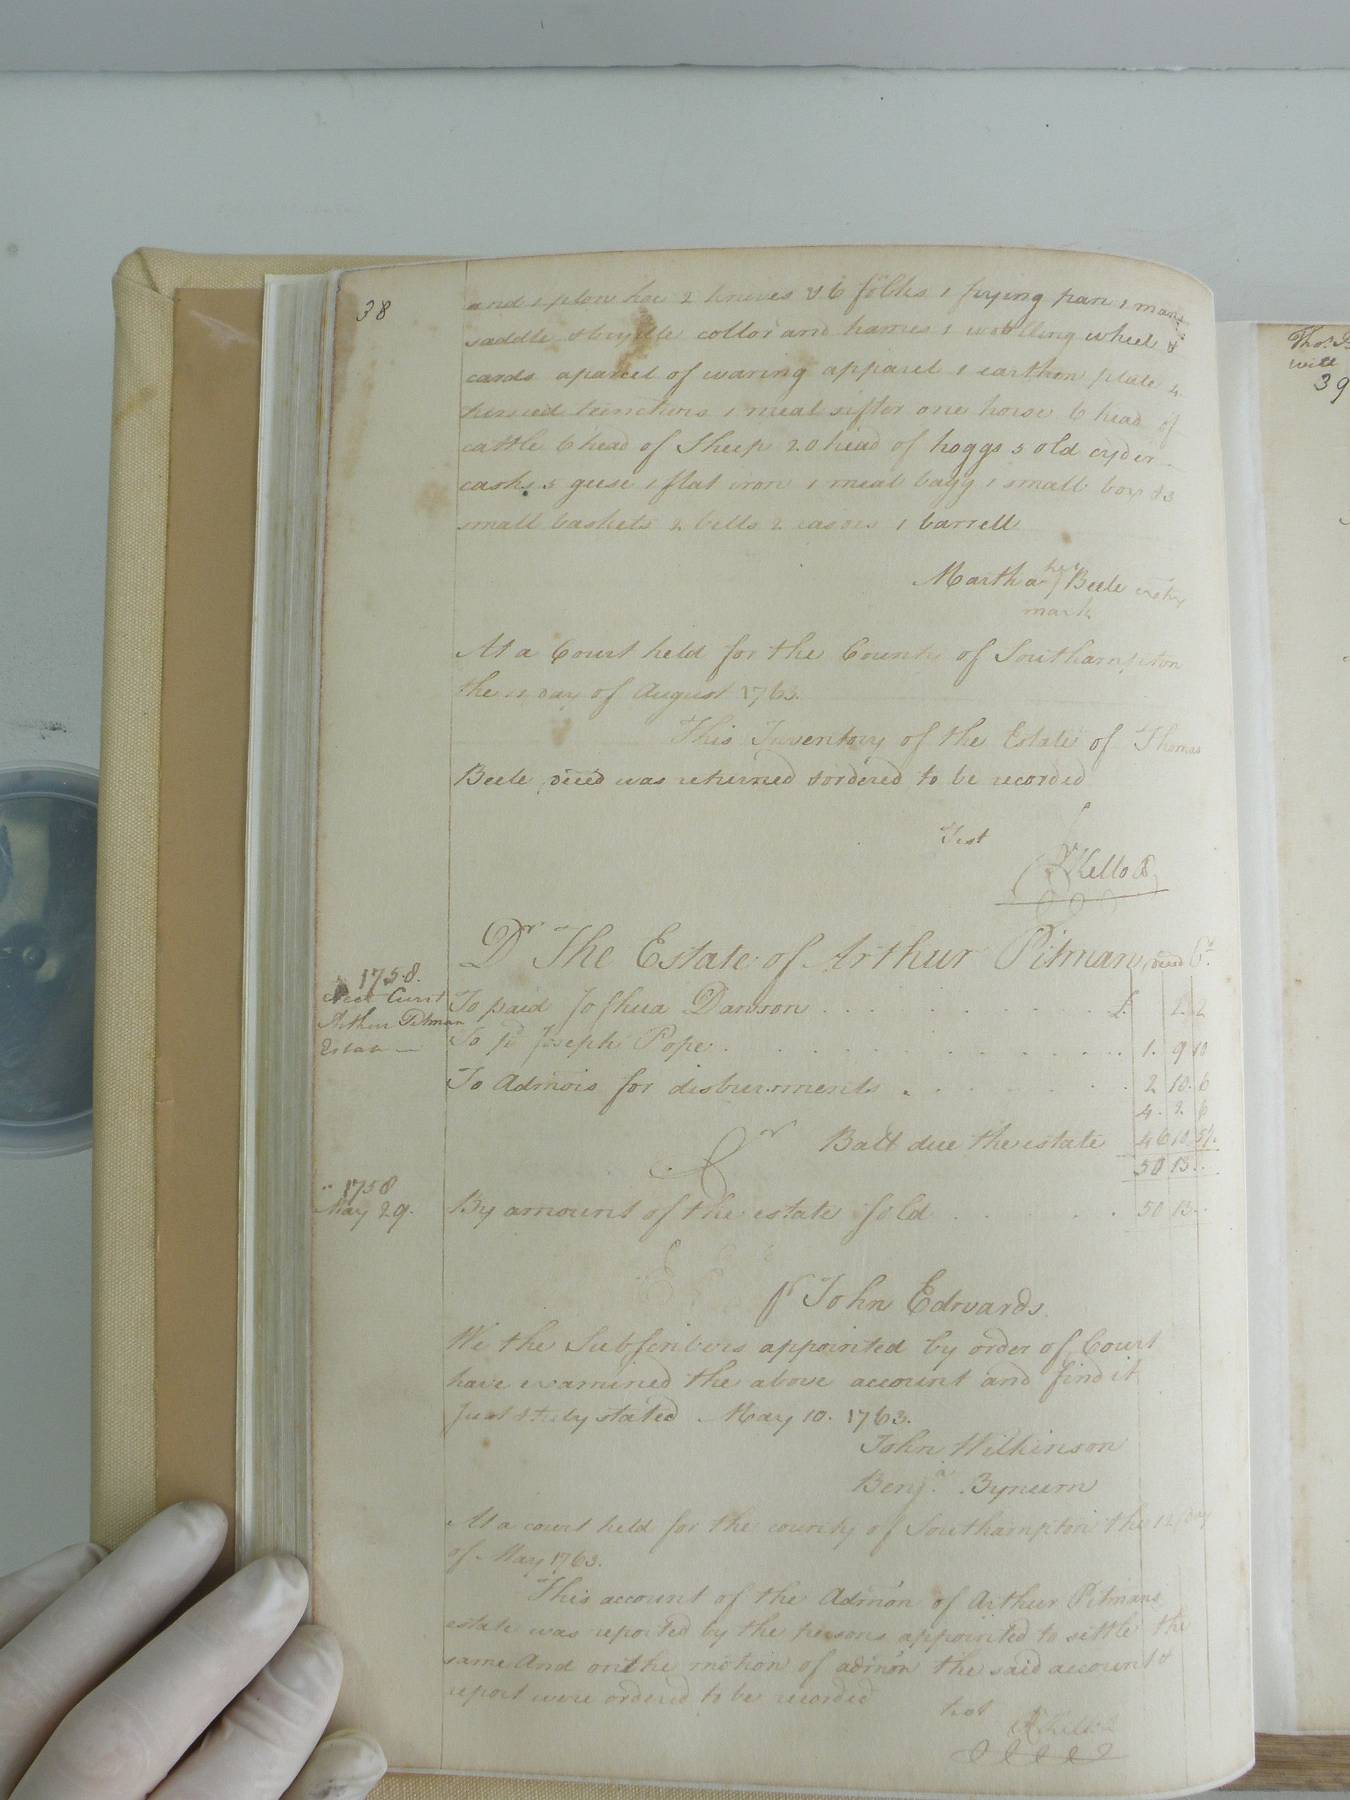 38
and 1 plow hoe 2 knives & 6 folks 1 frying pan 1 mans
saddle & brydle collor and hames 1 woolling wheel &
cards a parcel of waring apparel 1 earthon plate 4
turned trenchers 1 meal sifter one horse 6 head of
cattle 6 head of sheep 20 head of hoggs 5 old cyder
casks 5 geese 1 flat iron 1 meal bagg 1 small box & 3
small baskets 2 bells 2 rasors 1 barrell
Martha her Beele
mark
At a Court held for the County of Southampton
the 11 day of August 1763.
This Inventory of the Estate of Thomas
Beele decd was returned & ordered to be recorded
Test
R Kello
Dr The Estate of Arthur Pitman decd Cr.
1758.
Acct Curt
Arthur Pitman
Estate
To paid Joshua Dawson £ 2. 2
To pd Joseph Pope 1. 9 10
To Admors for disbursments 2 10. 6
4. 2. 6
Balt due the estate 46 10 5
50 13
Cr
1758
May 29.
By amount of the estate sold 50 13
pr John Edwards.
We the Subscribers appointed by order of Court
have examined the above account and find it
Just & truly stated May 10. 1763.
John Wilkinson
Benja. Bynum
At a court held for the county of Southampton the 12 day
of May 1763.
This account of the Admon of Arthur Pitmans
estate was reported by the persons appointed to settle the
same And on the motion of admon the said account &
report were ordered to be recorded
test
R Kello
Thos
will
39